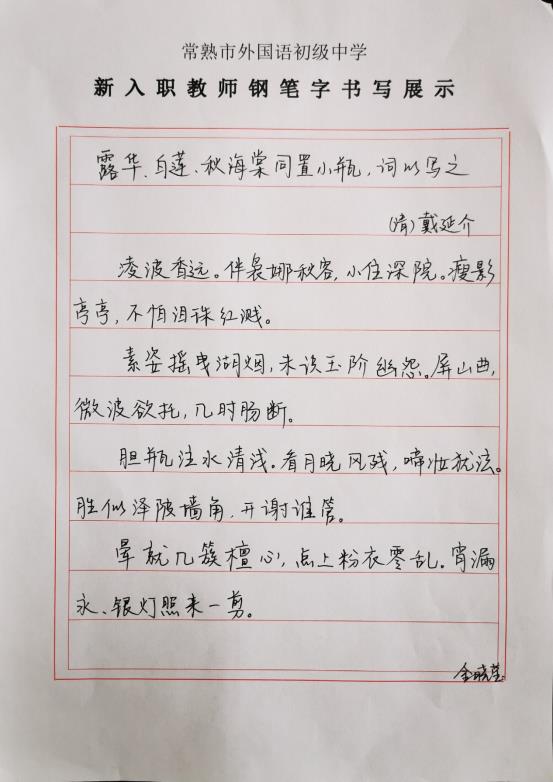 常熟市外国语初级中学
新入职教师钢笔字书写展示
露华、白莲、秋海棠同置小瓶，词以写之
（清）戴延介
凌波香远。伴袅娜秋容，小住深院。瘦影
亭亭，不怕泪珠红溅。
素姿摇曳湖烟，未许玉阶幽怨。屏山曲，
微波欲托，几时肠断。
胆瓶注水清浅。看月晓风残，啼妆犹泫。
胜似泽陂墙角，开谢谁管。
晕就几簇檀心，点上粉衣零乱。宵漏
永、银灯照来一剪。
金晓莹